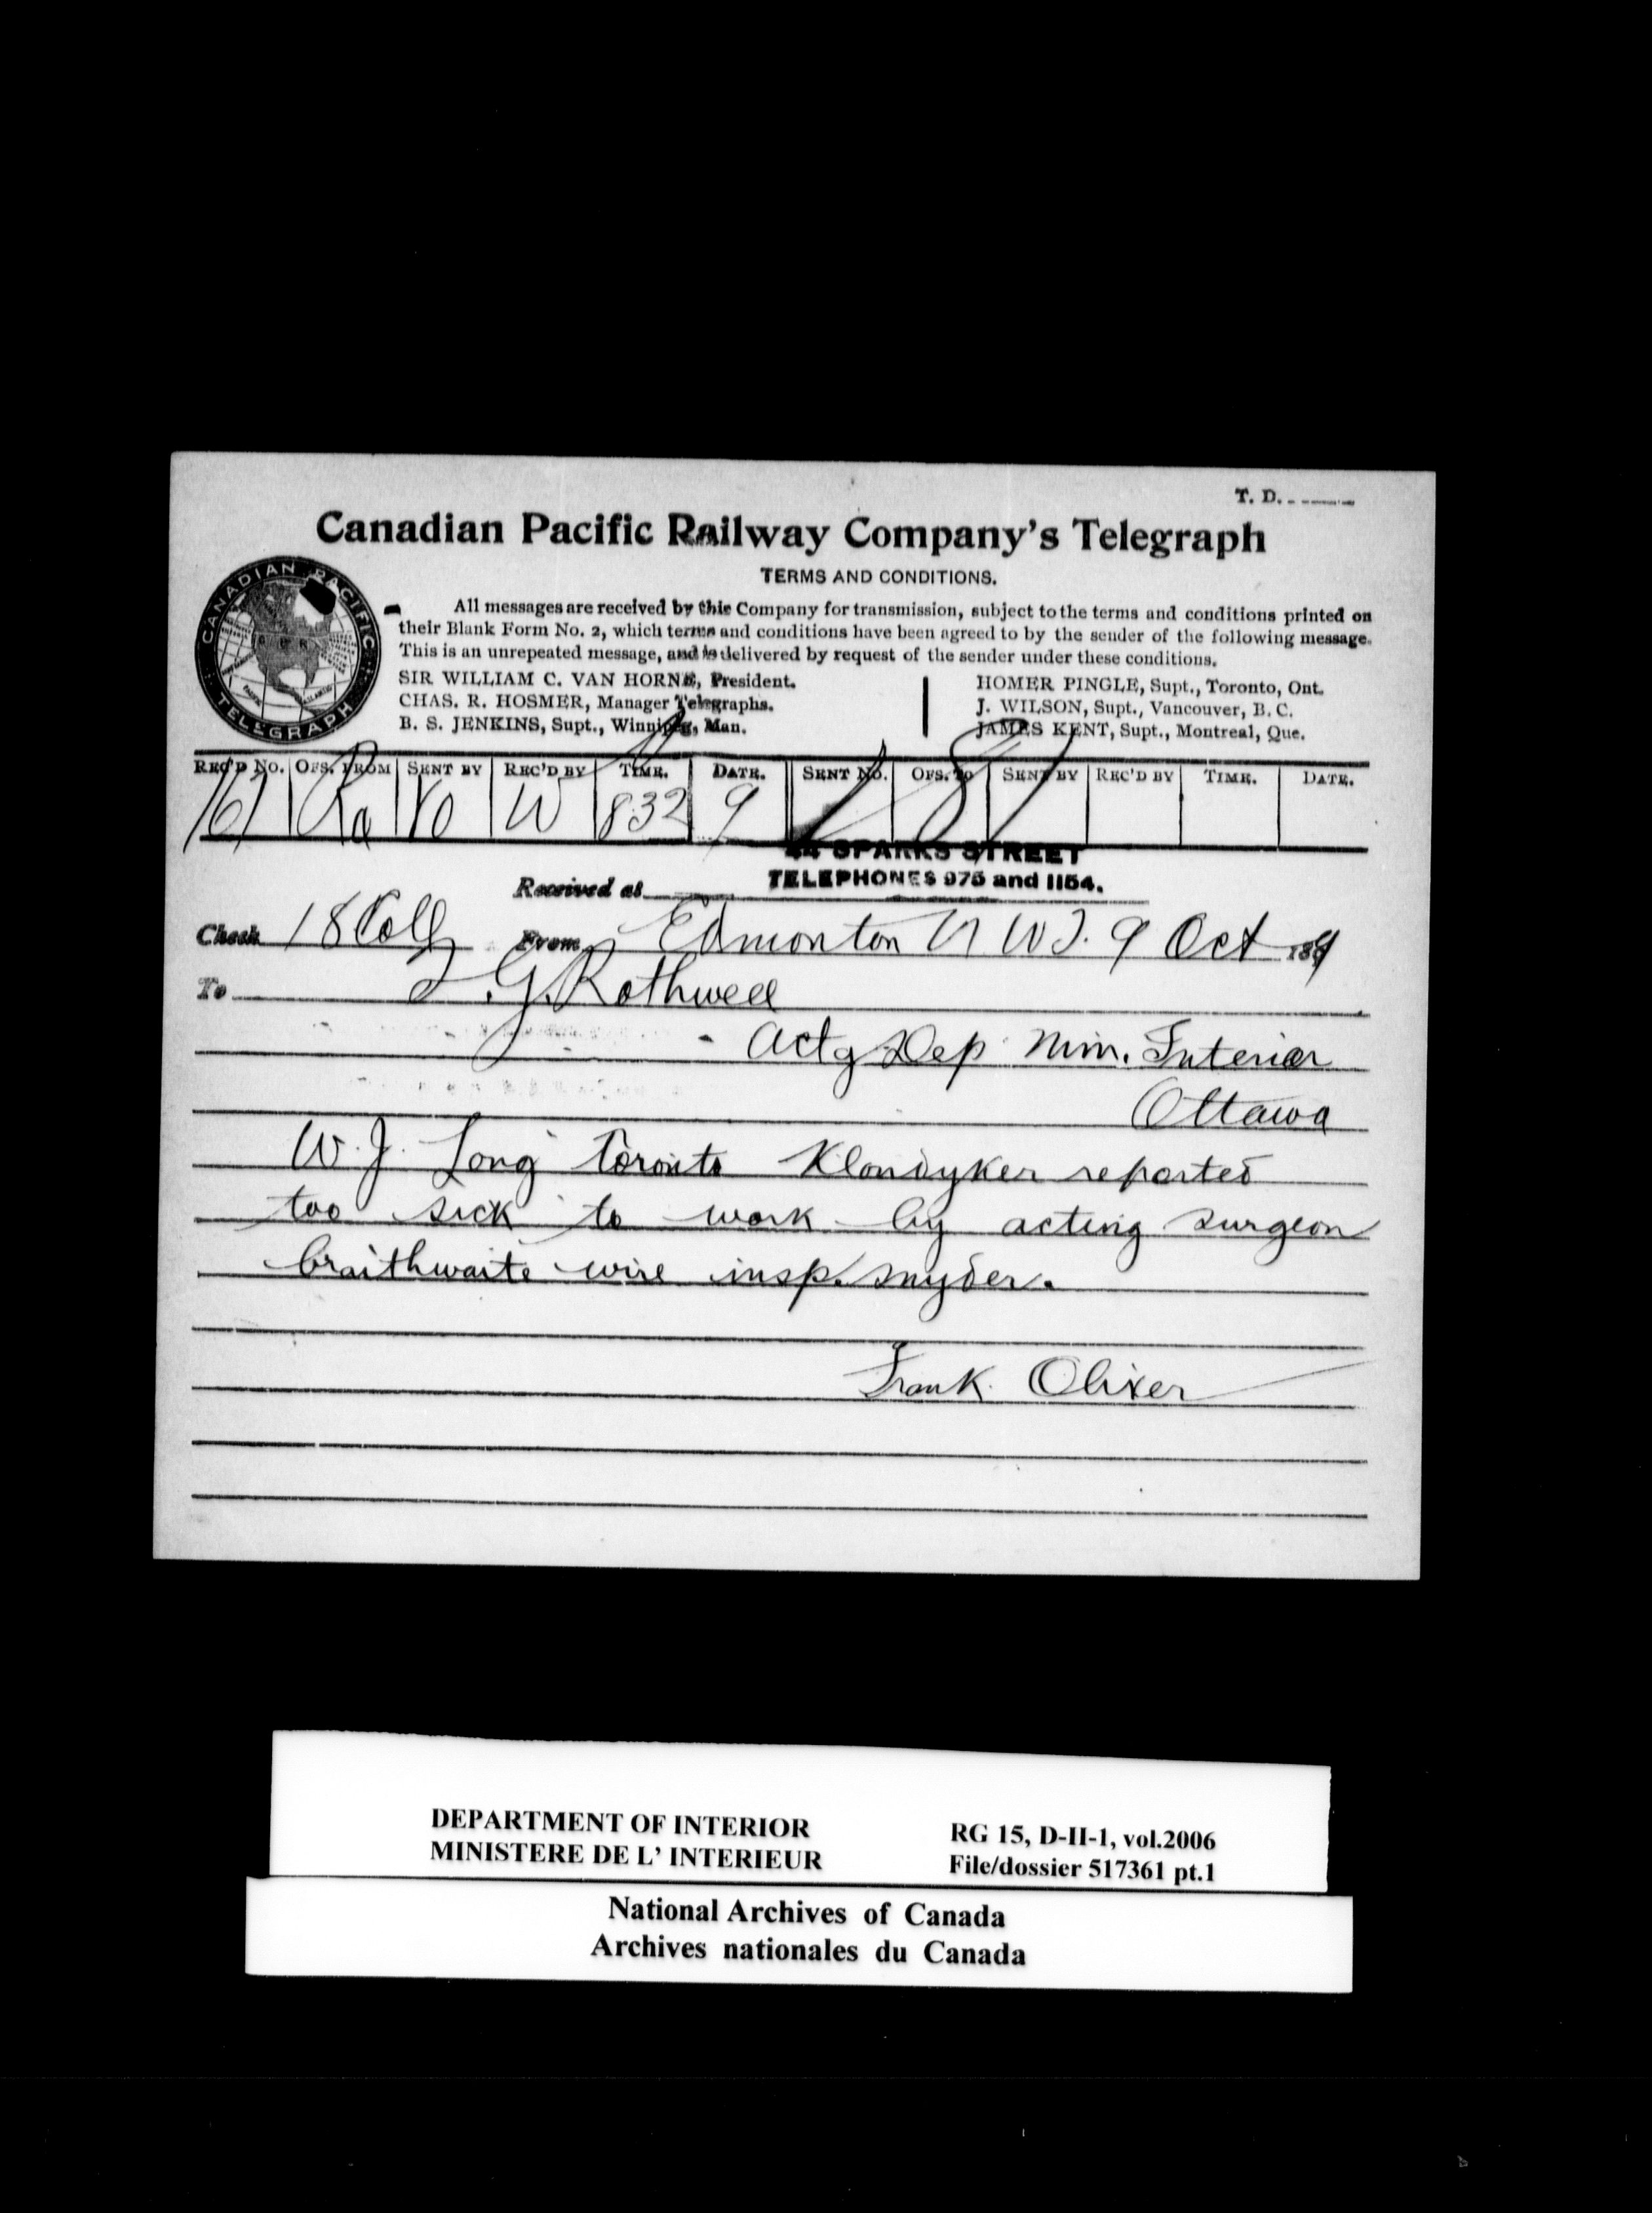 T. D.
Canadian Pacific Railway Company's Telegraph
TERMS AND CONDITIONS.
All messages are received by this Company for transmission, subject to the terms and conditions printed on
their Blank Form No. 2, which terms and conditions have been agreed to by the sender of the following message.
This is an unrepeated message, and is delivered by request of the sender under these conditions.
SIR WILLIAM C. VAN HORNE, President.
CHAS. R. HOSMER, Manager Telegraphs.
B. S. JENKINS, Supt., Winnipeg, Man.
HOMER PINGLE, Supt., Toronto, Ont.
J. WILSON, Supt., Vancouver, B. C.
JAMES KENT, Supt., Montreal, Que.
CANADIAN PACIFIC TELEGRAPH
REC'D NO. OFS. FROM SENT BY REC'D BY TIME. DATE. SENT NO. OFS. TO SENT BY REC'D BY TIME. DATE.
W 832 9
44 SPARKS STREET
TELEPHONES 975 and 1154.
Received at
Check 18 Coll From Edmonton N W T. 9 Oct 189
To T. G. Rothwell
Actg Dep Min. Interior
Ottawa
W. J. Long Toronto Klondyker reported
too sick to work by acting surgeon
braithwaite wire insp. snyder.
Frank Oliver
DEPARTMENT OF INTERIOR
MINISTERE DE L' INTERIEUR
RG 15, D-II-1, vol.2006
File/dossier 517361 pt.1
National Archives of Canada
Archives nationales du Canada